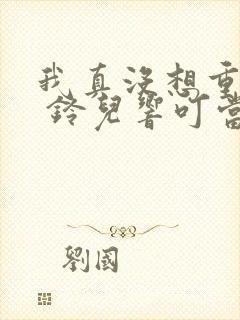 我真没想重
鈴兒響叮當
劉國